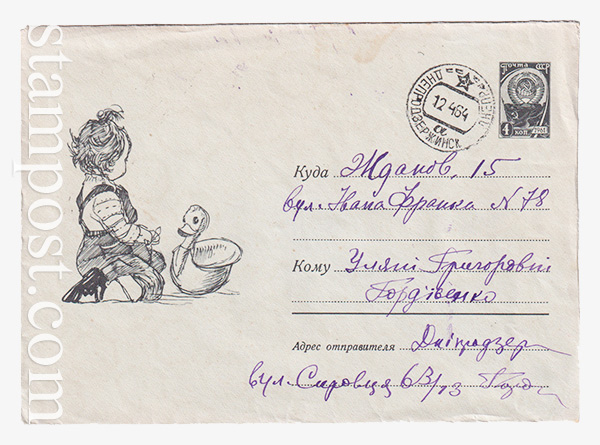 stampost.com
ДНЕПРОДЗЕРЖИНСК
12 4 64
а
ПОЧТА СССР
4 КОП. 1961
Куда Жданов, 15
вул. Івана Франка N 78
Кому Уляні Григорівні
Гордієнко
Адрес отправителя Дніпродзер
вул. 6В/13